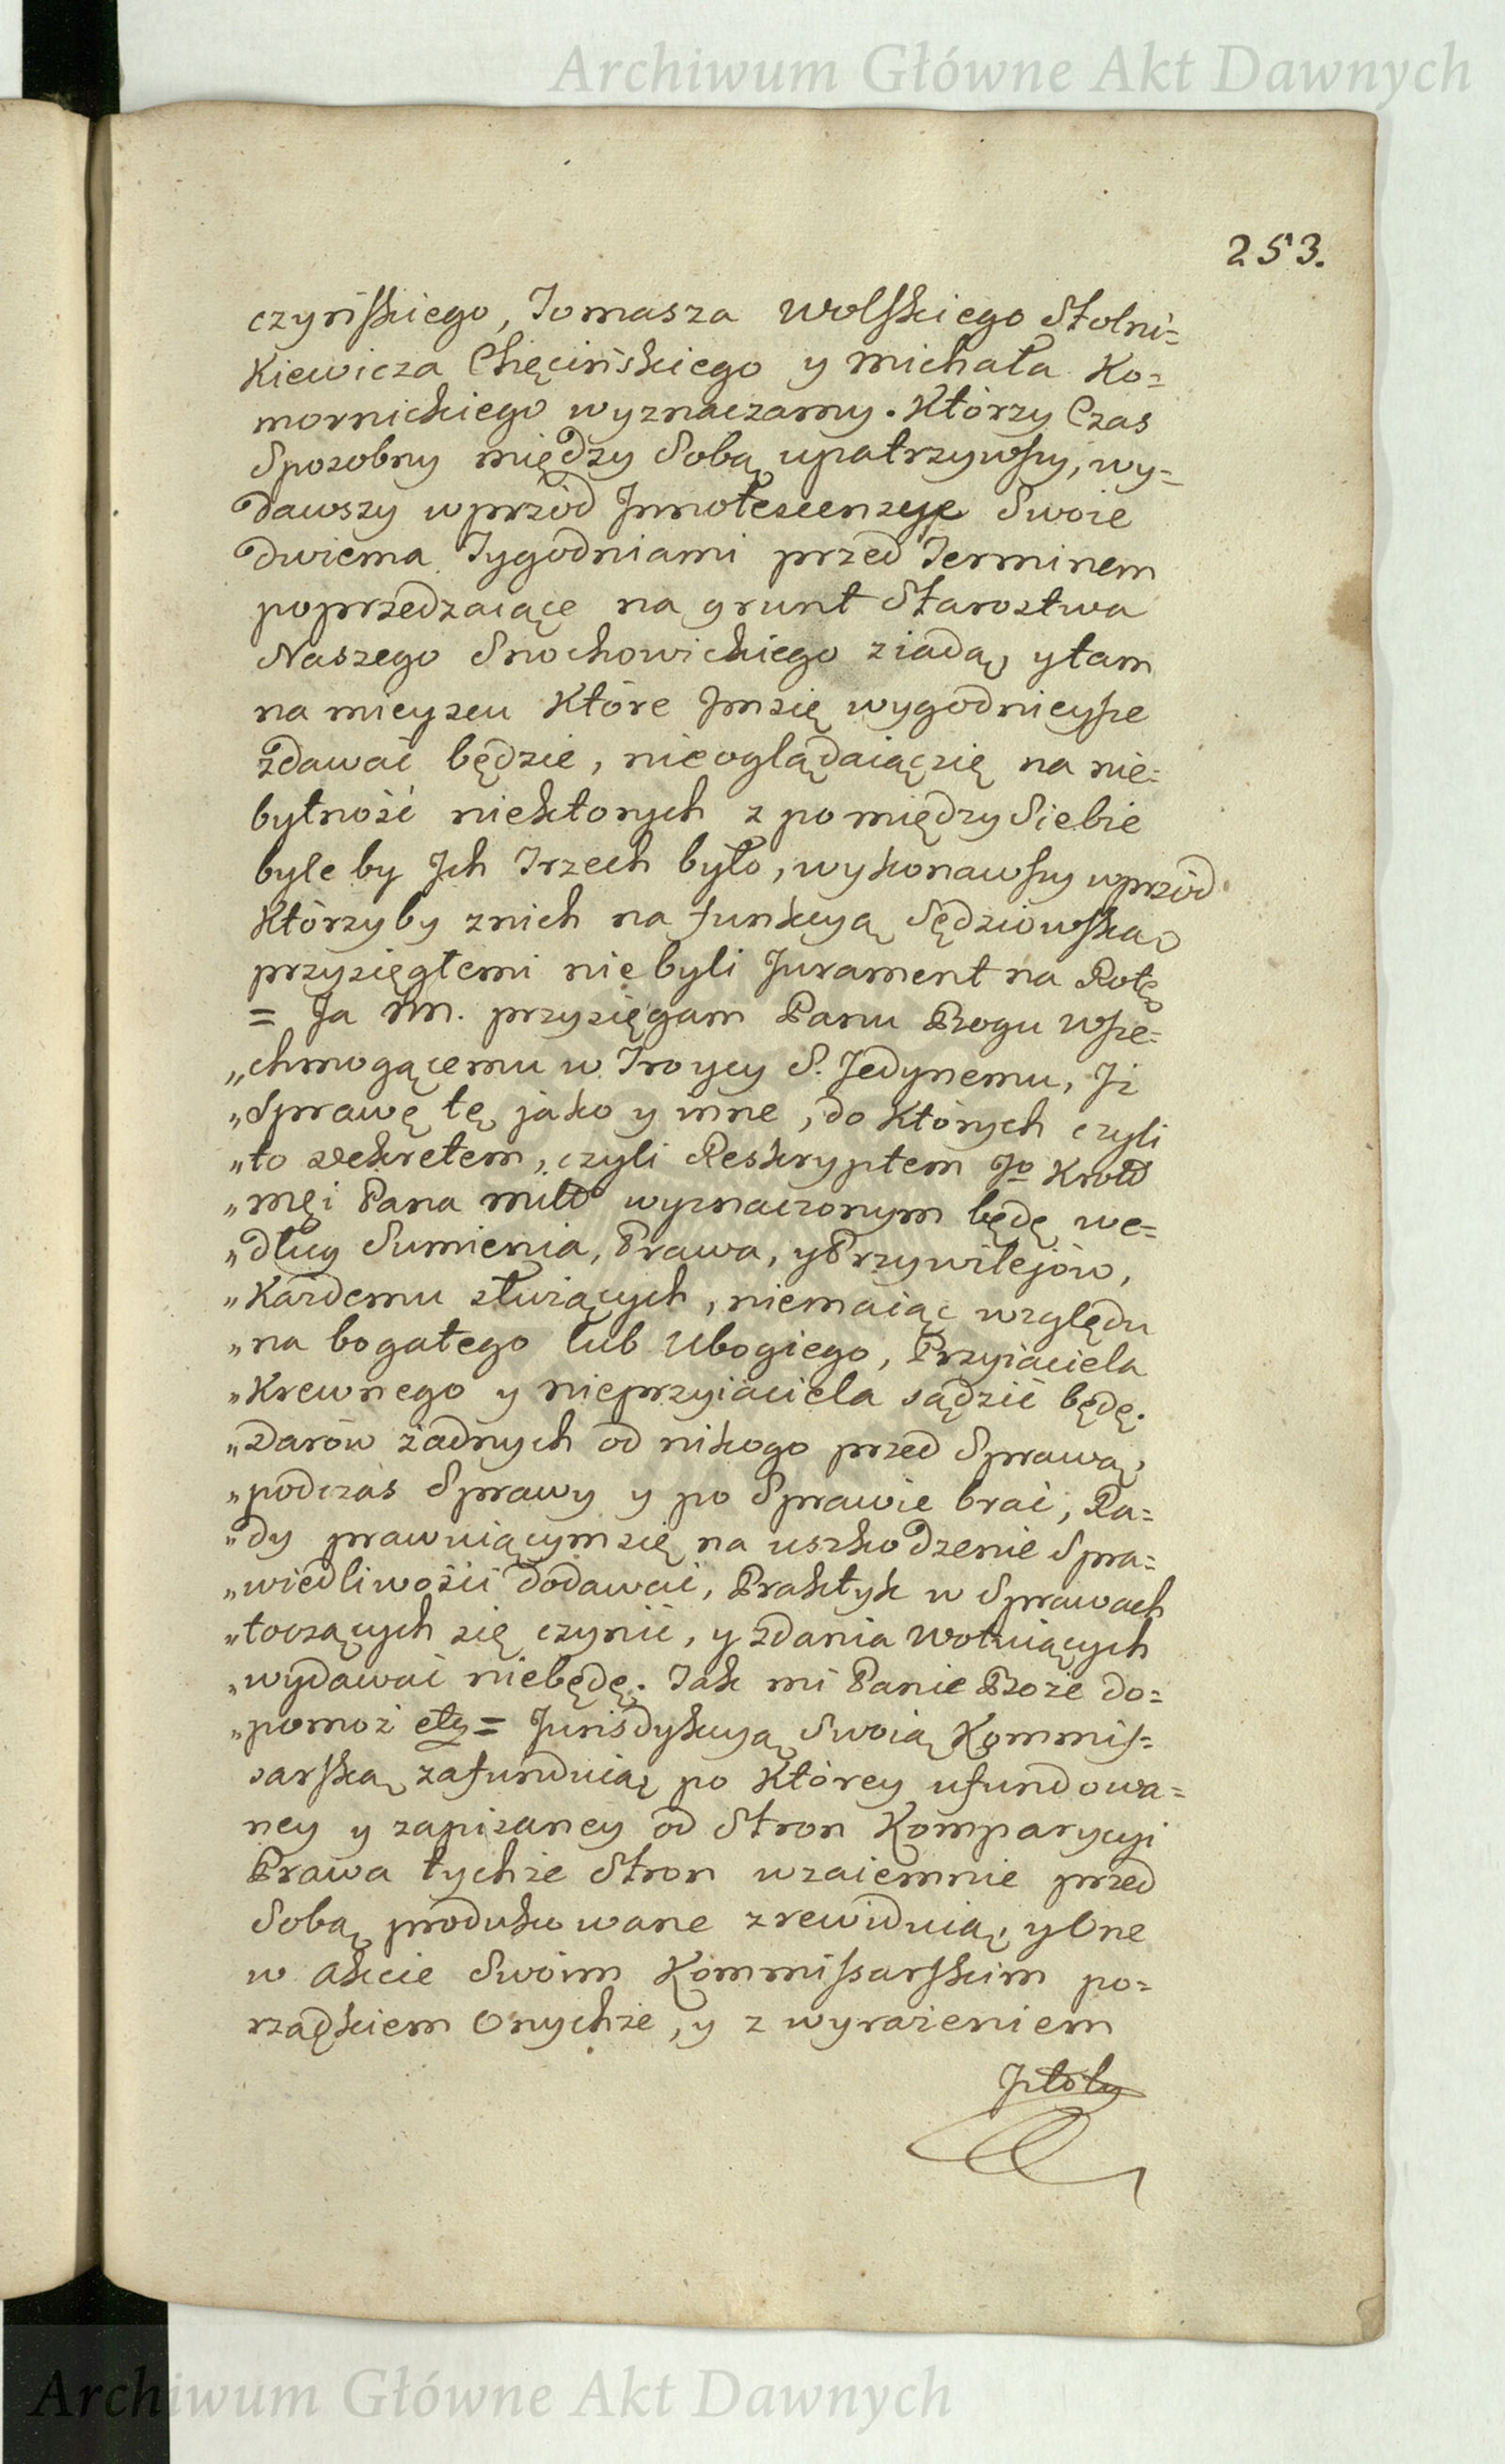 Archiwum Główne Akt Dawnych
253.
czyńskiego, Tomasza Wolskiego Stolni=
Kiewicza Chęcińskiego y Michała Ko=
mornickiego wyznaczamy. Którzy Czas
Sposobny między Sobą upatrzywszy, wy=
dawszy wprzód Innotescencyę Swoie
dwiema Tygodniami przed Terminem
poprzedzaiącę na grunt Starostwa
Naszego Snochowickiego ziadą, y tam
na mieyscu Które Im się wygodnieysze
zdawać będzie, nieoglądaiąc się na nie=
bytność niektorych z pomiędzy Siebie
byle by Ich Trzech było, wykonawszy wprzód
Którzyby znich na funkcyą Sędziowską
przysięgłemi niebyli Jurament na Rotę
= Ja NN. przysięgam Panu Bogu Wsze=
„chmogącemu w Troycy S. Jedynemu, Iż
„Sprawę tę jako y inne, do Których czyli
„to dekretem, czyli Reskryptem Jo Krolo
„męi Pana miło wyznaczonym będę we=
„dług Sumienia, Prawa, y Przywilejów,
„Każdemu służących, niemaiąc względu
„na bogatego lub Ubogiego, Przyiaciela
„Krewnego y nieprzyiaciela sądzić będę.
„Darów żadnych od nikogo przed Sprawą,
„podczas Sprawy y po Sprawie brać, Ra=
„dy prawuiącym się na uszkodzenie Spra=
„wiedliwości dodawać, Praktyk w Sprawach
„toczących się czynić, y zdania Wotuiących
„wydawać niebędę. Tak mi Panie Boże do=
„pomoż etc= Jurisdykcyą Swoią Kommis=
sarską zafunduią po Którey ufundowa=
ney y zapisaney od Stron Komparycyi
Prawa tychże Stron wzaiemnie przed
Sobą produkowane zrewiduią, y One
w Akcie Swoim Kommissarskim po=
rządkiem Onychże, y z wyrażeniem
Istoty
Archiwum Główne Akt Dawnych